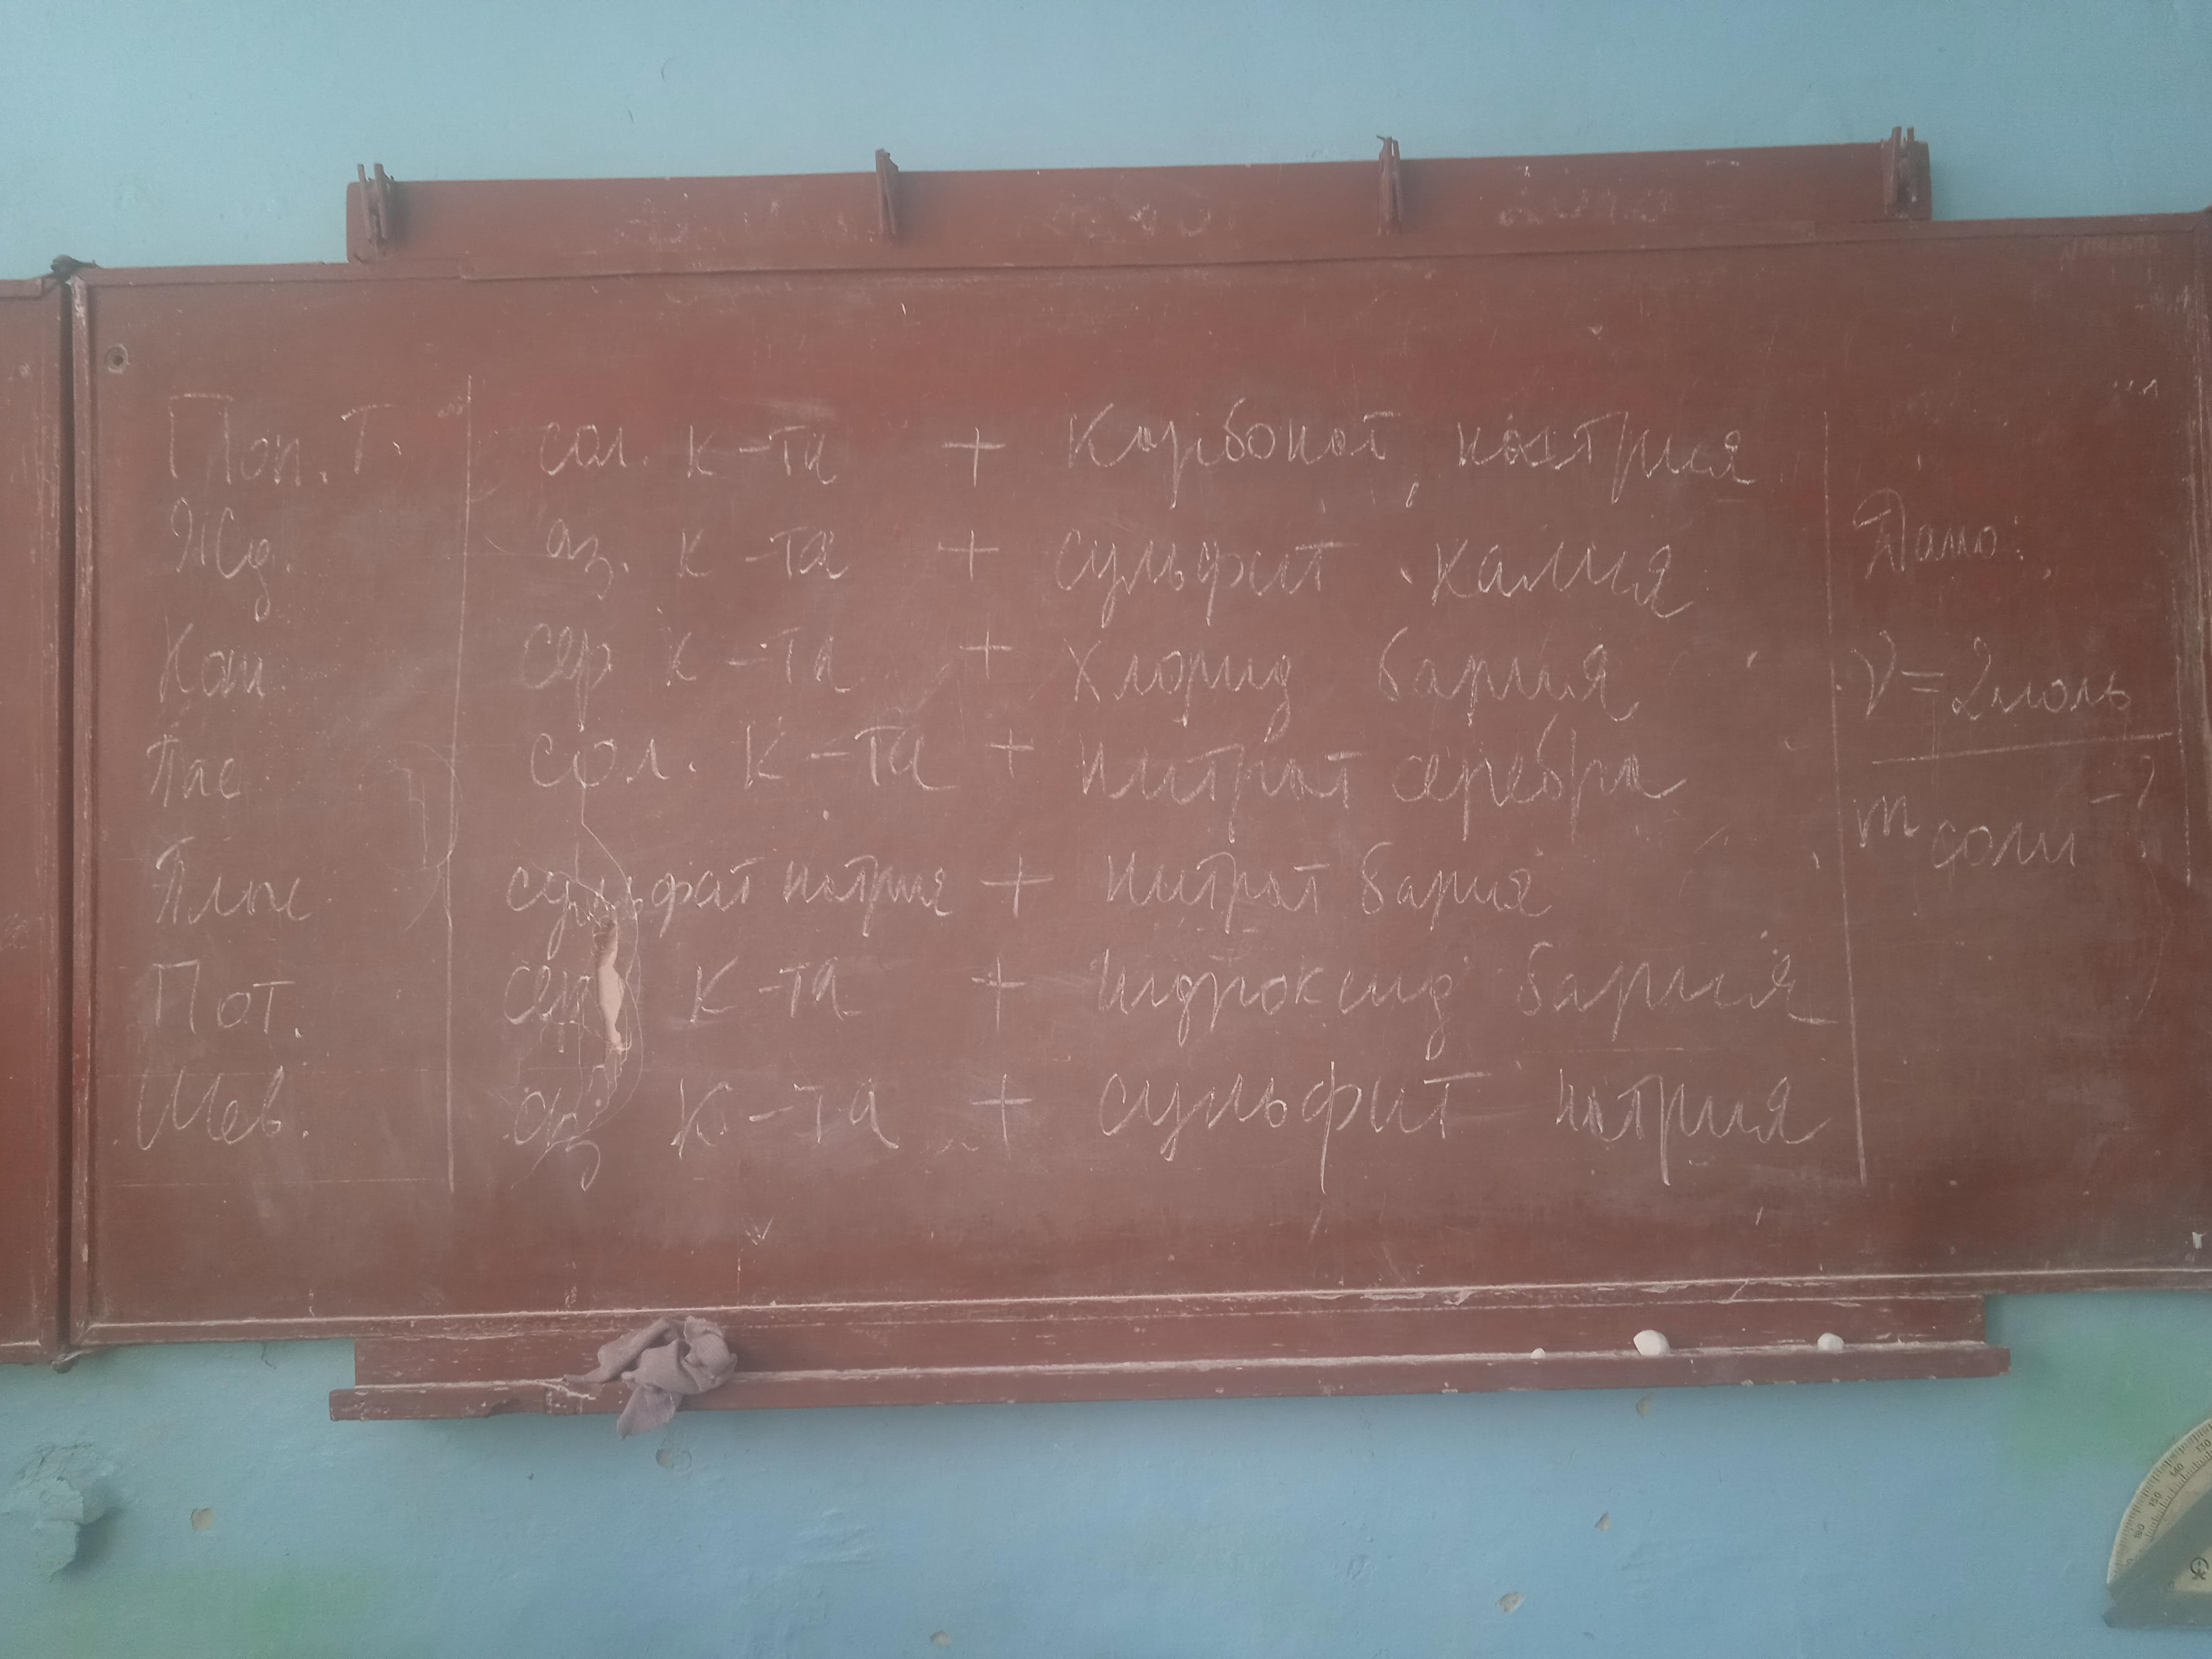 Поп. Т. сол. к-та + Карбонат натрия
Жд. аз. к-та + сульфит калия
Кан. сер к-та + хлорид бария
Пас сол. к-та + нитрат серебра
Плюс. сульфат натрия + нитрат бария
Пот. сер к-та + гидроксид бария
Шев. аз к-та + сульфит натрия
Дано:
ν = 2 моль
m соли - ?